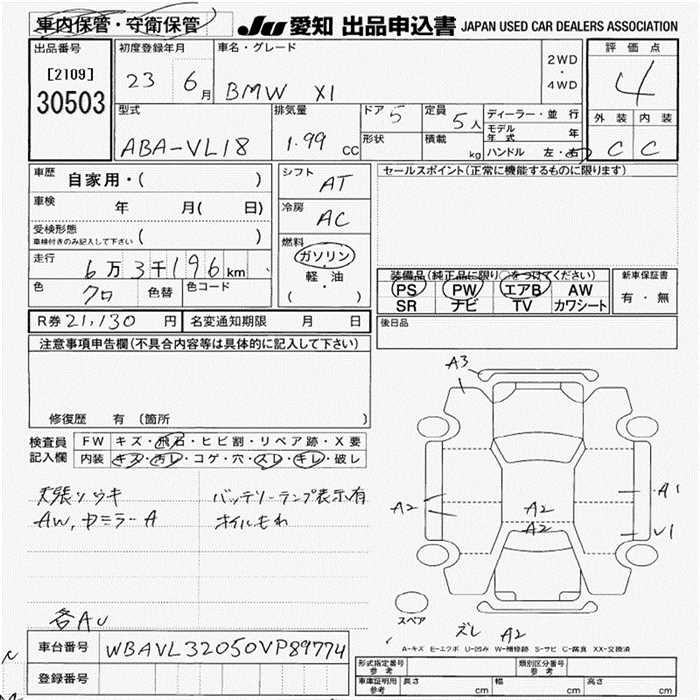 車内保管・守衛保管
JU 愛知 出品申込書 JAPAN USED CAR DEALERS ASSOCIATION
出品番号 初度登録年月 車名・グレード 評価点
[2109]
30503
23 6月 BMW X1
2WD
・
4WD
4
型式 排気量 ドア 5 定員 5人
ABA-VL18 1.99 cc
形状 積載 kg
ディーラー・並行
モデル年式 年
ハンドル 左・右
外装 内装
C C
車歴 自家用・( )
車検 年 月( 日)
受検形態
車検付きのみ記入して下さい ( )
走行 6万3千196km
色 クロ 色替 色コード
シフト AT
冷房 AC
燃料
ガソリン
軽・油
( )
セールスポイント(正常に機能するものに限ります)
装備品(純正品に限り○をつけてください) 新車保証書
PS PW エアB AW
SR ナビ TV カワシート
有・無
R券 21,130 円 名変通知期限 月 日
後日品
注意事項申告欄(不具合内容等は具体的に記入して下さい)
修復歴 有 (箇所 )
検査員
記入欄
FW キズ・飛石・ヒビ割・リペア跡・X要
内装 キズ・汚レ・コゲ・穴・スレ・キレ・破レ
バッテリーランプ表示有
オイルもれ
A3
A2
A2
A2
A1
U1
スペア
ズレ A2
A-キズ E-エクボ U-凹み W-補修跡 S-サビ C-腐食 XX-交換済
車台番号 WBAVL32050VP89774
登録番号
形式指定番号
参考
類別区分番号
参考
車庫証明用
参考
長さ cm 幅 cm 高さ cm